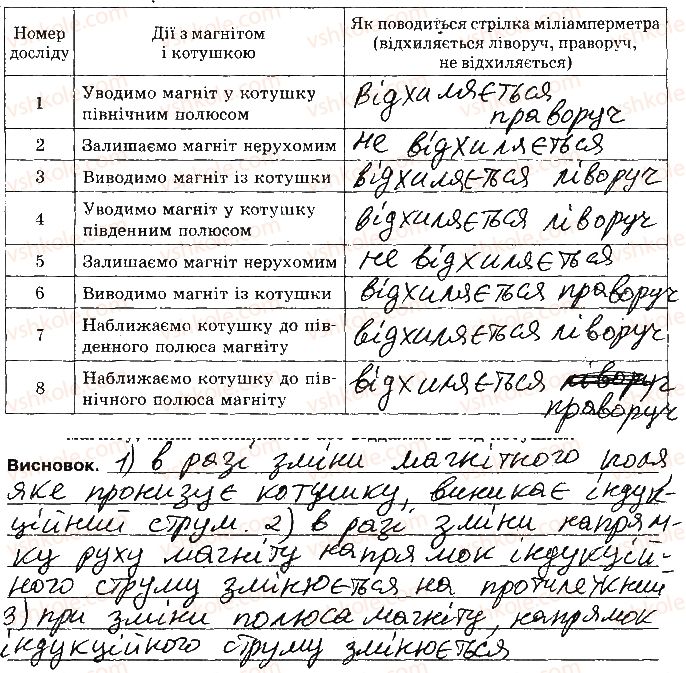 Номер досліду | Дії з магнітом і котушкою | Як поводиться стрілка міліамперметра (відхиляється ліворуч, праворуч, не відхиляється)
1 | Уводимо магніт у котушку північним полюсом | відхиляється праворуч
2 | Залишаємо магніт нерухомим | не відхиляється
3 | Виводимо магніт із котушки | відхиляється ліворуч
4 | Уводимо магніт у котушку південним полюсом | відхиляється ліворуч
5 | Залишаємо магніт нерухомим | не відхиляється
6 | Виводимо магніт із котушки | відхиляється праворуч
7 | Наближаємо котушку до південного полюса магніту | відхиляється ліворуч
8 | Наближаємо котушку до північного полюса магніту | відхиляється ліворуч праворуч
Висновок. 1) в разі зміни магнітного поля
яке пронизує котушку, виникає індук-
ційний струм. 2) в разі зміни напрям-
ку руху магніту напрямок індукцій-
ного струму змінюється на протилежний
3) при зміни полюса магніту, напрямок
індукційного струму змінюється